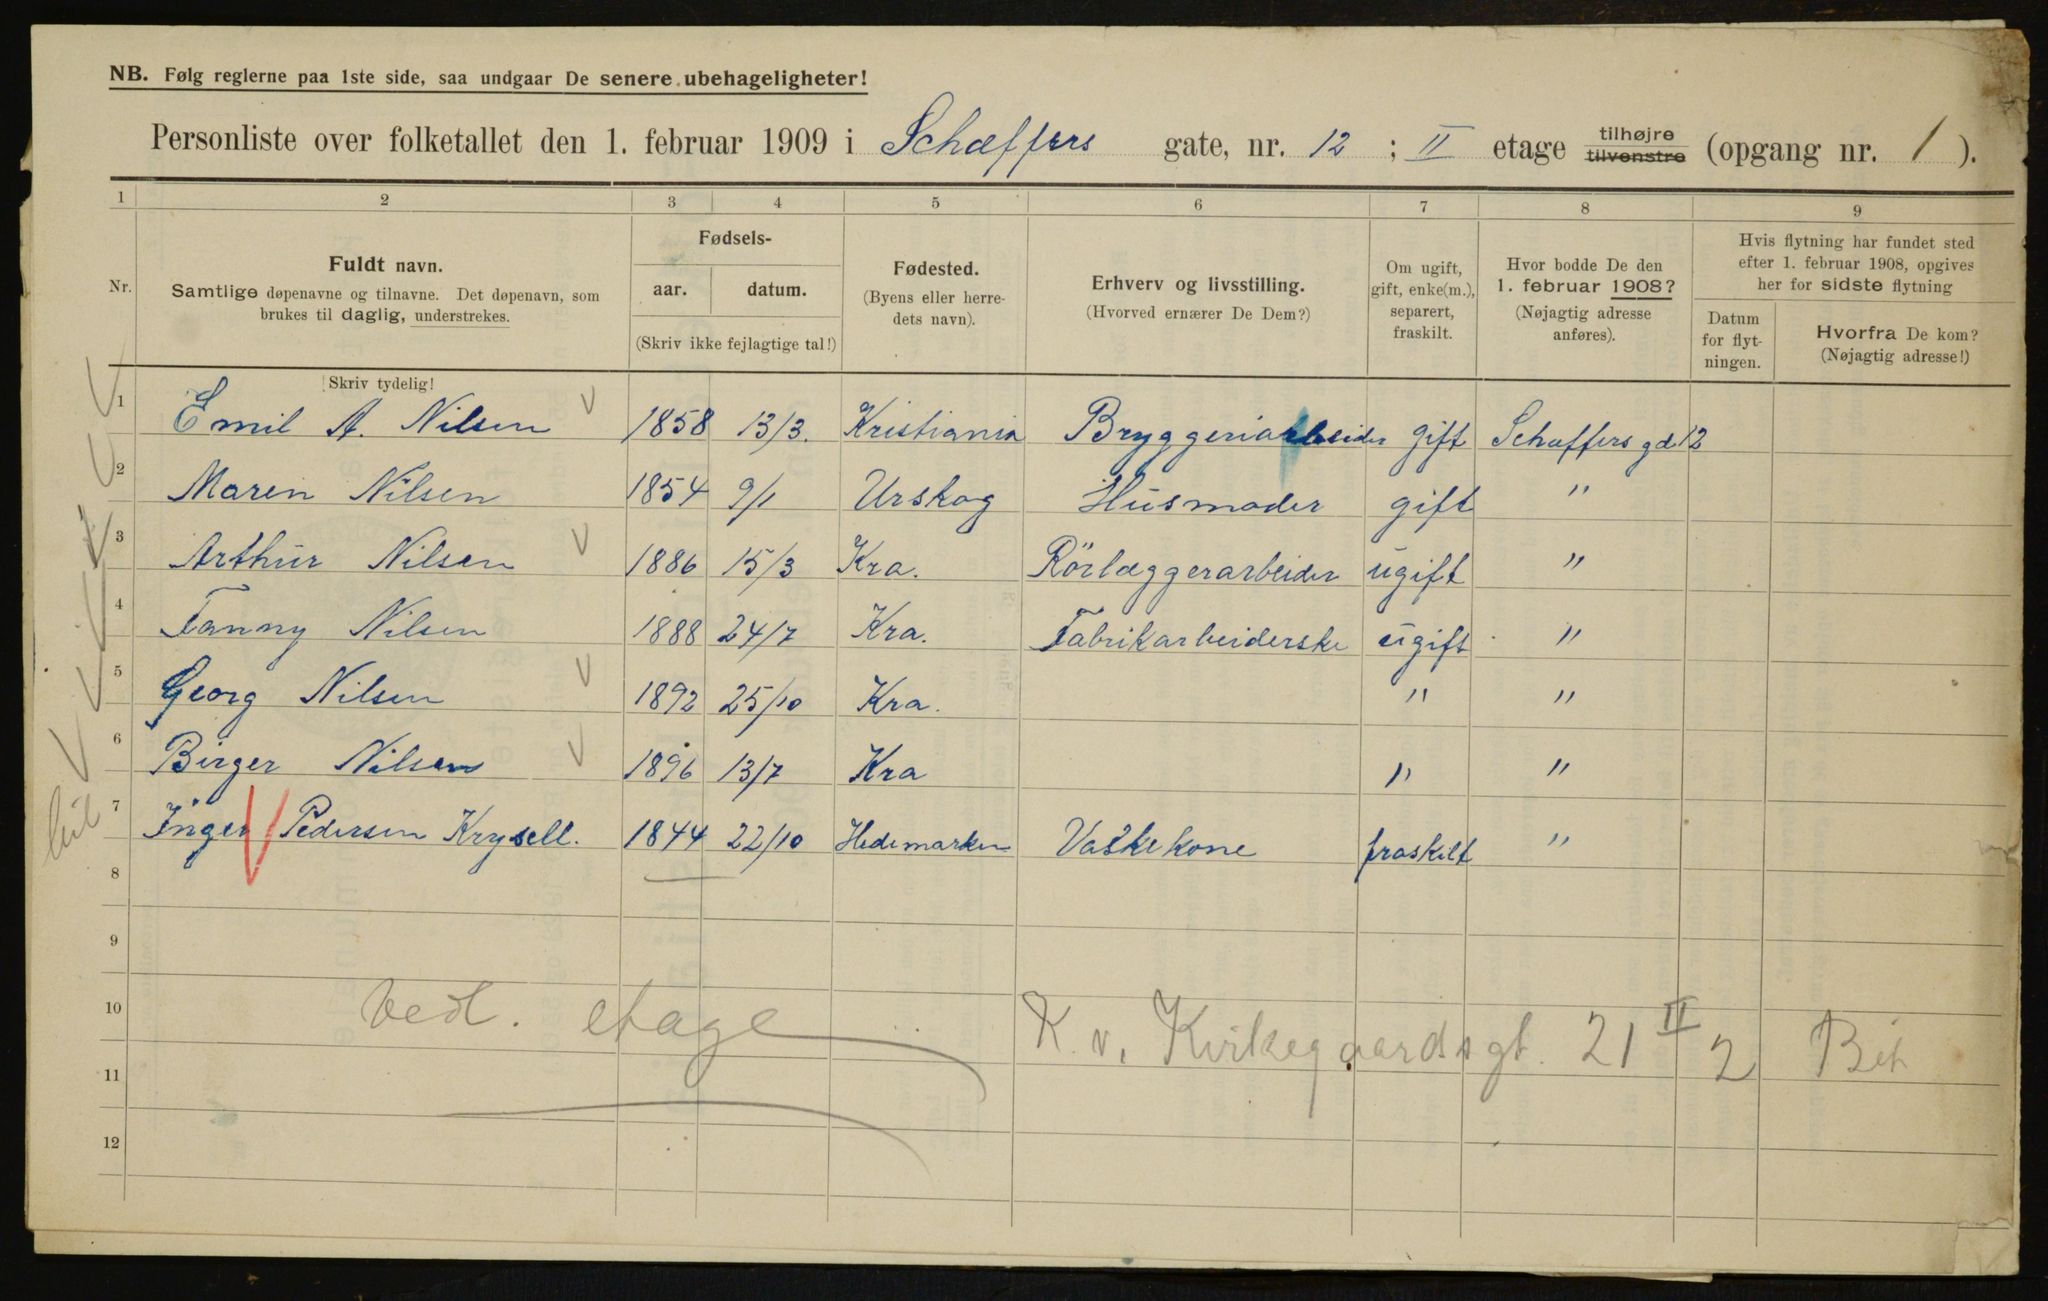 NB. Følg reglerne paa 1ste side, saa undgaar De senere ubehageligheter!
Personliste over folketallet den 1. februar 1909 i Schæffers gate, nr. 12 ; II etage tilhøjre tilvenstre (opgang nr. 1 ).
1 2 3 4 5 6 7 8 9
Nr.
Fuldt navn.
Samtlige døpenavne og tilnavne. Det døpenavn, som
brukes til daglig, understrekes.
Fødsels-
aar. datum.
(Skriv ikke fejlagtige tal!)
Fødested.
(Byens eller herre-
dets navn).
Erhverv og livsstilling.
(Hvorved ernærer De Dem?)
Om ugift,
gift, enke(m.),
separert,
fraskilt.
Hvor bodde De den
1. februar 1908?
(Nøjagtig adresse
anføres).
Hvis flytning har fundet sted
efter 1. februar 1908, opgives
her for sidste flytning
Datum
for flyt-
ningen.
Hvorfra De kom?
(Nøjagtig adresse!)
Skriv tydelig!
1 Emil A. Nilsen 1858 13/3. Kristiania Bryggeriarbeider gift Schæffers gd 12
2 Maren Nilsen 1854 9/1 Urskog Husmoder gift "
3 Arthur Nilsen 1886 15/3 Kra. Rörlæggerarbeider ugift "
4 Fanny Nilsen 1888 24/7 Kra. Fabrikarbeiderske ugift "
5 Georg Nilsen 1892 25/10 Kra. " "
6 Birger Nilsen 1896 13/7 Kra " "
7 Inger Pedersen Krysell. 1844 22/10 Hedemarken Vaskekone fraskilt "
8
9
10 Ved. etage K. v. Kirkegaardsgt. 21 II 2
11
12